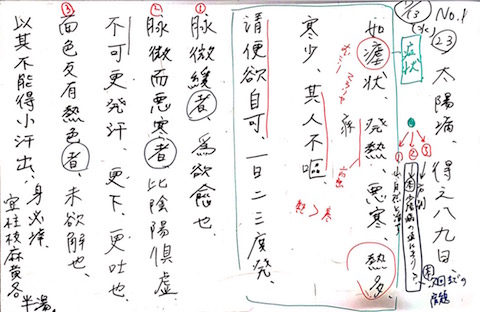 No.1
㉓ 太陽病、得之八九日
① ② ③
症状
如瘧状、発熱、悪寒、熱多、
寒少、其人不嘔、
熱>寒
請便欲自可、一日二三度発、
① 脉微緩者、為欲愈也、
② 脉微而悪寒者、此陰陽倶虚
不可更発汗、更下、更吐也、
③ 面色反有熱色者、未欲解也、
以其不能得小汗出、身必痒、
宜桂枝麻黄各半湯、